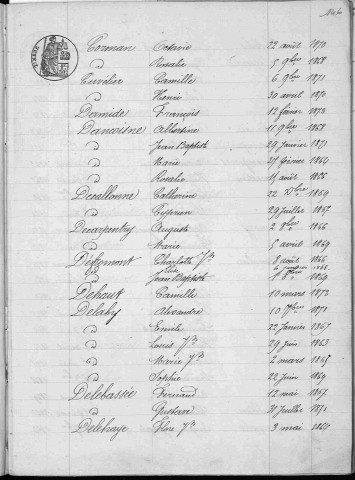 146
TIMBRE
Corman Octavie 22 août 1870
d° Rosalie 5 9bre 1868
Cuvelier Camille 6 9bre 1871
d° Henri 30 avril 1870
Damide François 12 février 1872
Dancoisne Albertine 11 9bre 1868
d° Jean Baptiste 29 Janvier 1873
d° Marie 27 février 1864
d° Rosalie 15 août 1866
Decallonne Catherine 22 Xbre 1869
d° Cyprien 29 Juillet 1867
Decarpentry Auguste 2 8bre 1866
d° Marie 5 avril 1869
Défromont Charlotte Jh 8 août 1866
d° Jean Baptiste 1869
Dehaut Camille 10 mars 1872
Delaby Alexandre 10 7bre 1871
d° Emile 22 Janvier 1867
d° Louis Jh 29 Juin 1863
d° Marie Jh 2 mars 1865
d° Sophie 22 Juin 1869
Delebassée Fernand 12 mai 1867
d° Gustave 21 Juillet 1871
Delehaye Flore Jh 3 mai 1867